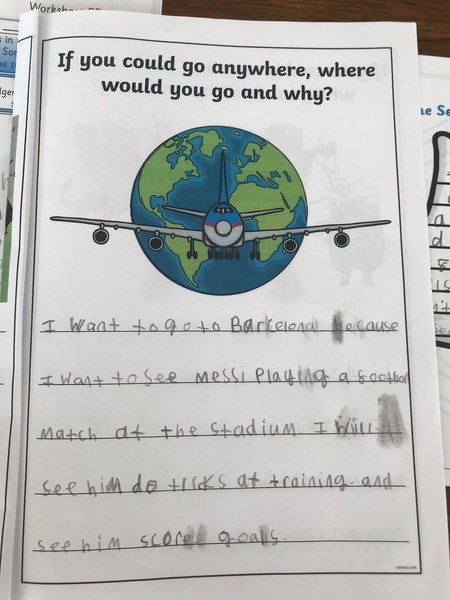 Worksheet
If you could go anywhere, where
would you go and why?
I want to go to Barcelona because
I want to see messi playing a football
match at the stadium. I will
see him do tricks at training. and
see him score goals.
twinkl.com